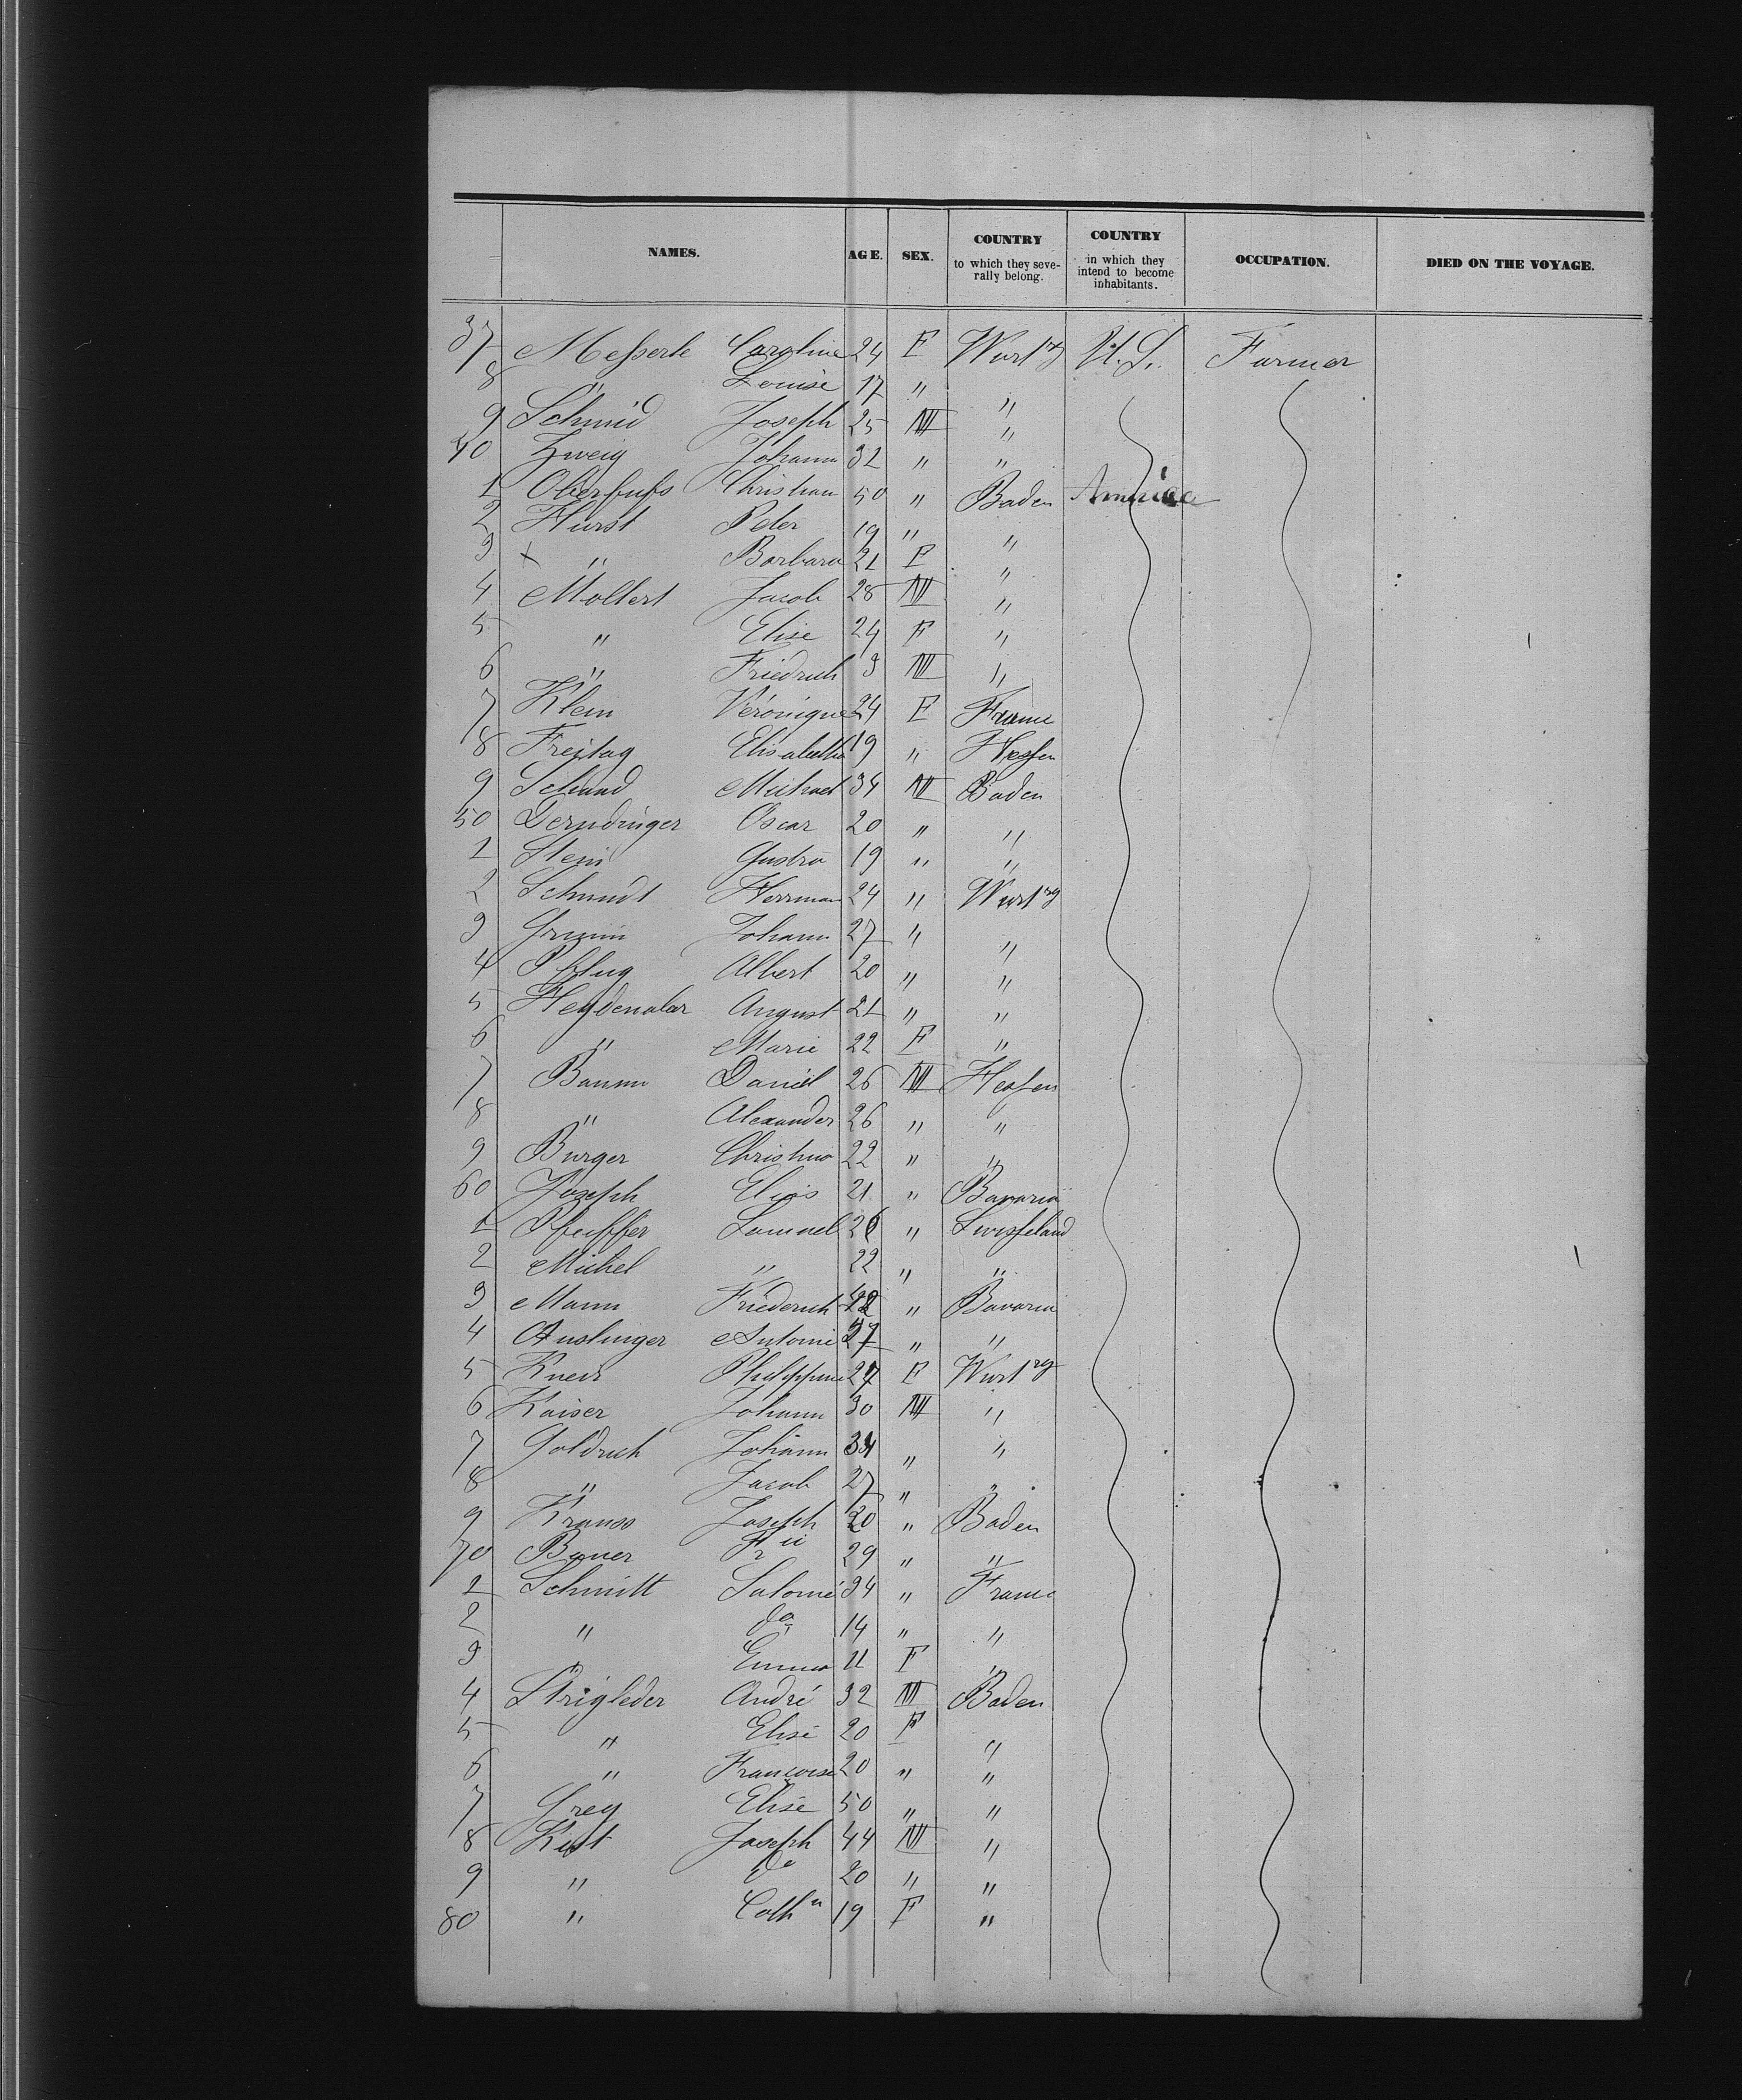 NAMES. AGE. SEX. COUNTRY to which they severally belong. COUNTRY in which they intend to become inhabitants. OCCUPATION. DIED ON THE VOYAGE.
37 Messerle Caroline 24 F Wurtg U.S. Farmer
8 " Louise 17 " "
9 Schmid Joseph 25 M "
40 Zweig Johann 32 " "
1 Oberfufs Christian 50 " Baden America
2 Hurst Peter 19 " "
3 x " Barbara 21 F "
4 Mollert Jacob 28 M "
5 " Elise 24 F "
6 " Friedrich 3 M "
7 Klein Véronique 24 F France
8 Freitag Elisabetha 19 " Hessen
9 Schaad Michael 34 M Baden
50 Oscar 20 " "
1 Stein Gustav 19 " "
2 Schmidt Herrman 24 " Wurtrg
3 Johann 27 " "
4 Pflug Albert 20 " "
5 August 21 " "
6 " Marie 22 F "
7 Baumm Daniel 26 M Hessen
8 " Alexander 26 " "
9 Burger Christino 22 " "
60 Joseph Elias 21 " Bavaria
1 Pfeiffer Samuel 26 " Swisseland
2 Michel " 22 " "
3 Mann Friederich 42 " Bavaria
4 Anslinger Antonie 27 " "
5 Philippine 27 F Wurtrg
6 Kaiser Johann 30 M "
7 Goldrich Johann 34 " "
8 " Jacob 27 " "
9 Krauss Joseph 20 " Baden
70 Bauer 29 " "
1 Schmitt Salomé 34 " France
2 " do 14 " "
3 " Emma 11 F "
4 Strigleder André 32 M Baden
5 " Elise 20 F "
6 " Françoise 20 " "
7 Grey Elise 50 " "
8 Kist Joseph 44 M "
9 " do 20 " "
80 " Cathn 19 F "